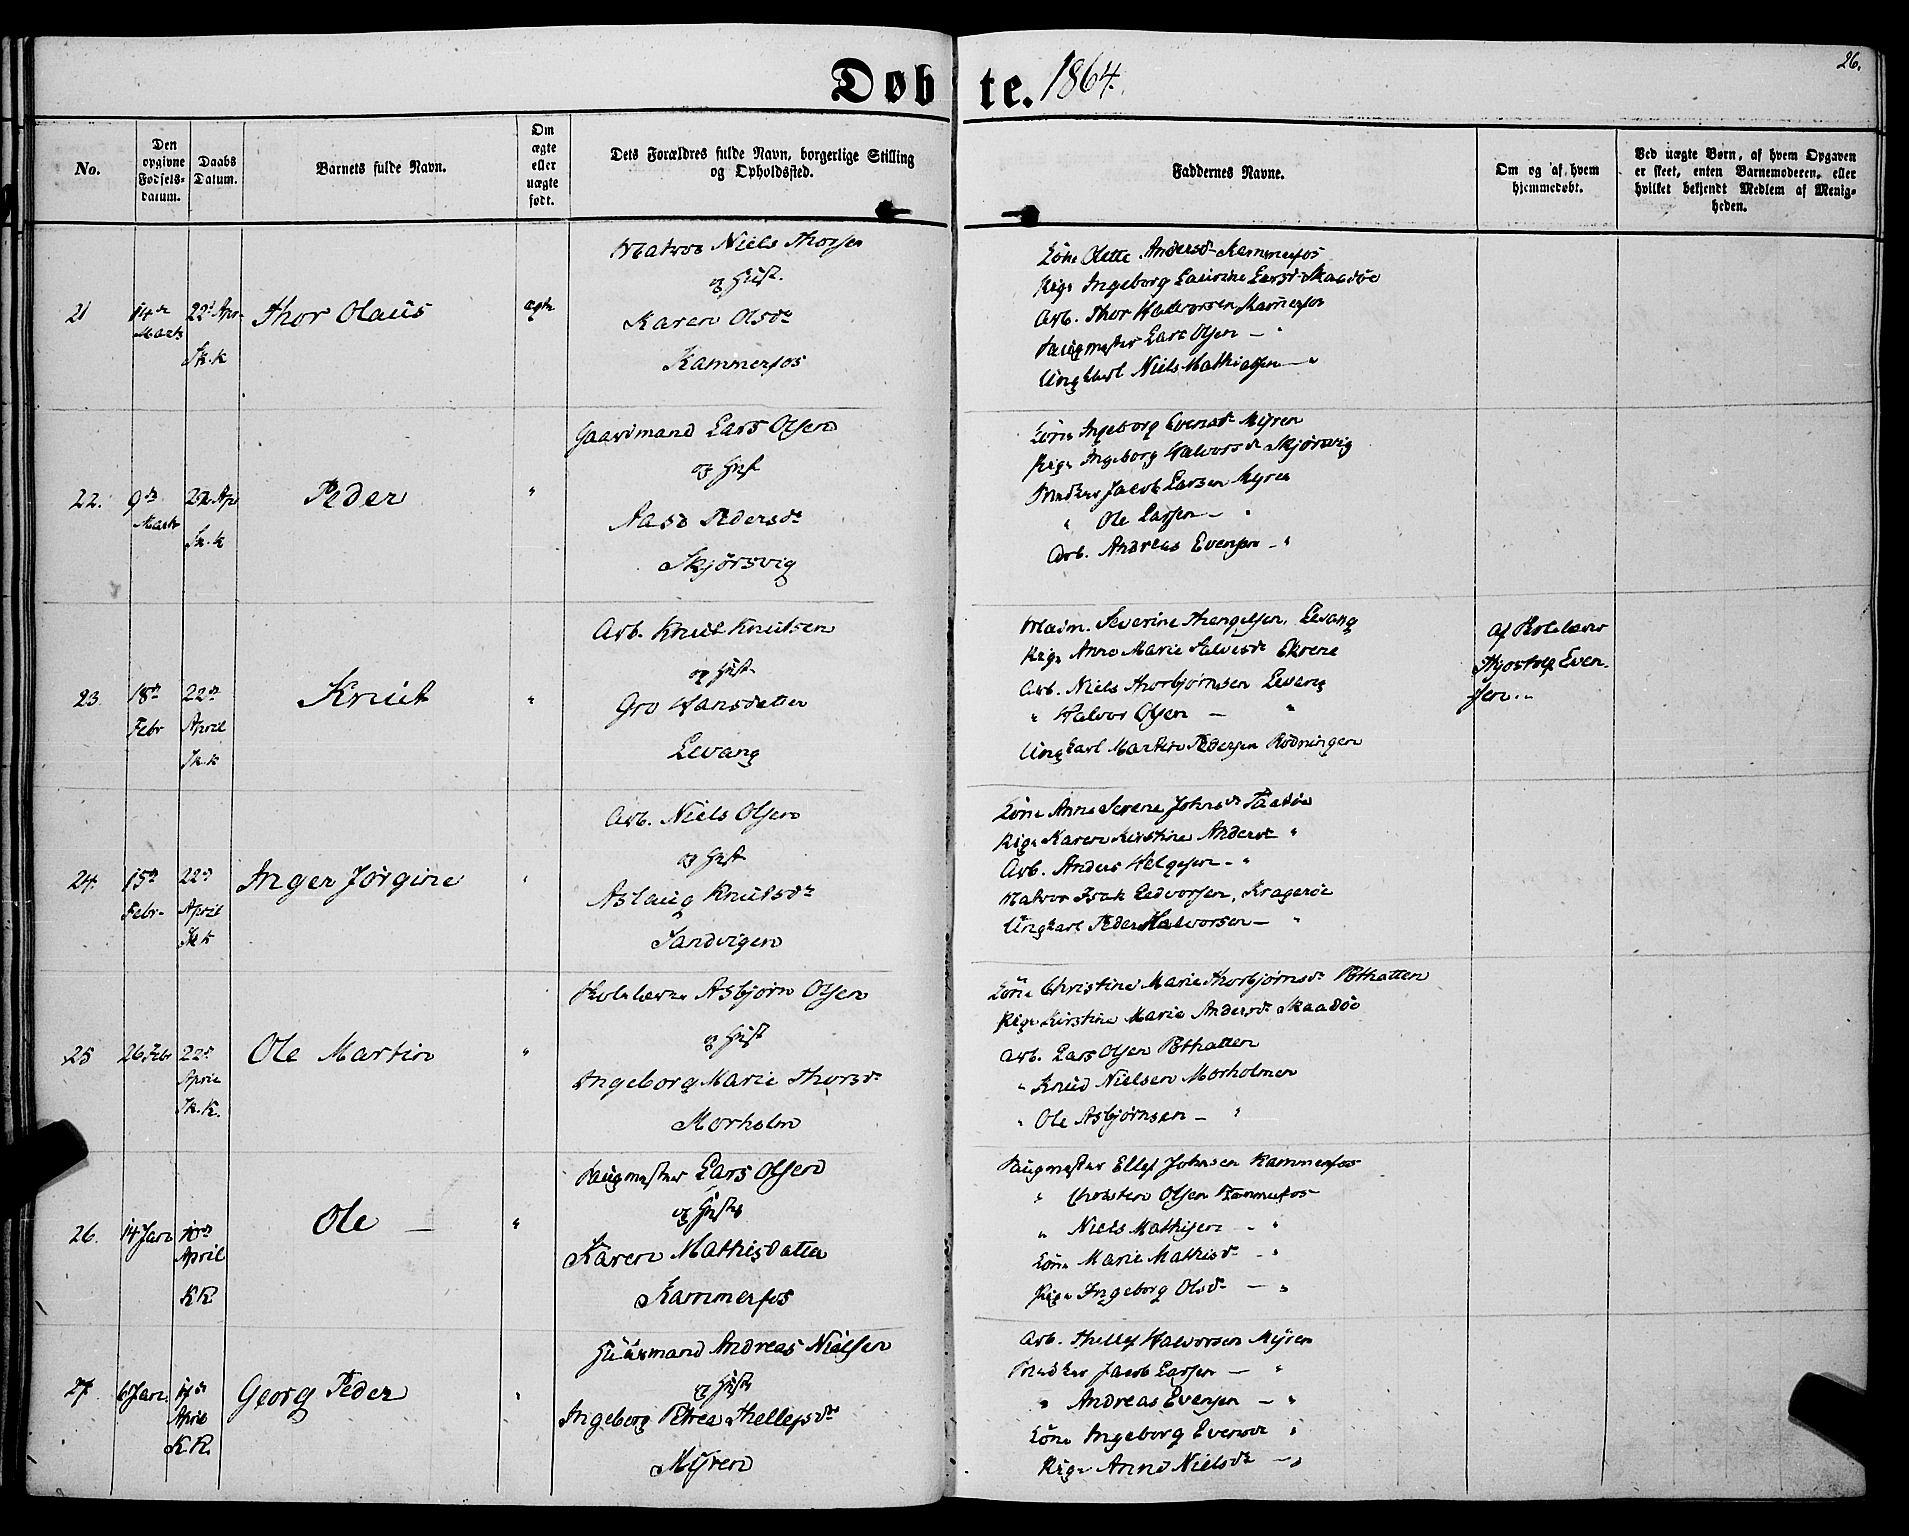 Døbte. 1864.
26.
No.
Den opgivne Fødsels-datum.
Daabs Datum.
Barnets fulde Navn.
Om ægte eller uægte født.
Dets Forældres fulde Navn, borgerlige Stilling og Opholdssted.
Faddernes Navne.
Om og af hvem hjemmedøbt.
Ved uægte Børn, af hvem Opgaven er skeet, enten Barnemoderen, eller hvilket bekjendt Medlem af Menigheden.
21
14de Marts
22d Apr.
Sk.k
Thor Olaus
ægte
Matros Niels Thorsen
og Hust.
Karen Olsdr
Kammerfos
Kone Olette Andersdr Kammerfos
Pige Ingeborg Laurine Larsdr Skaadøe
Arb. Thor Halvorsen Kammerfos
Saugmester Lars Olsen — "
Ungkarl Niels Mathiassen — "
22.
9de Marts
22de Apr
Sk.k
Peder
"
Gaardmand Lars Olsen
og Hust
Aase Pedersdr
Skjörsvig
Kone Ingeborg Evensdr Myren
Pige Ingeborg Halvorsdr Skjørsvig
Snedker Jacob Larsen Myren
" Ole Larsen — "
Arb. Andreas Evensen — "
23.
18de
Febr
22de
April
Sk.k
Knut
"
Arb. Knut Knutsen
og Hust.
Gro Hansdatter
Levang
Madm. Severine Thengelsen, Levang
Pige Anne Marie Halvorsdr Ekrene
Arb. Niels Thorbjørnsen Levang
" Halvor Olsen — "
Ungkarl Martin Pedersen Rødningen
af Skolelærer
Kjostolf Even-
sen.
24.
15de
Febr.
22de
April
Sk K
Inger Jørgine
"
Arb. Niels Olsen
og Hust
Aslaug Knutsdr
Sandvigen
Kone Anne Serene Johnsdr Taatøe
Pige Karen Kirstine Andersdr "
Arb. Anders Helgesen — "
Matros Isak Ledvorsen, Kragerøe
Ungkarl Peder Halvorsen — "
25
26 Feb
22de
April
Sk.K.
Ole Martin
"
Skolelærer Asbjørn Olsen
og Hust
Ingeborg Marie Thorsdr
Morholm
Kone Christine Marie Thorbjørnsdr Pothatten
Pige Kirstine Marie Andersdr Skaadøe
Arb. Lars Olsen Pothatten
" Knud Nielsen Morholmen
" Ole Asbjørnsen — "
26.
14 Jan
10de
April
KK
Ole —
"
Saugmester Lars Olsen
og Hustr
Karen Mathisdatter
Kammerfos
Saugmester Ellef Johnsen Kammerfos
" Christen Olsen Kammerfos
" Niels Mathisen — "
Kone Marie Mathisdr — "
Pige Ingeborg Olsdr — "
27.
6 Jan.
17de
April
K.K.
Georg Peder
"
Huusmand Andreas Nielsen
og Hustr
Ingeborg Petrea Thellefsdr
Myren
Arb. Thellef Halvorsen Myren
Snedker Jacob Larsen — "
" Andreas Evensen — "
Kone Ingeborg Evensdr "
Pige Anne Nielsdr — "